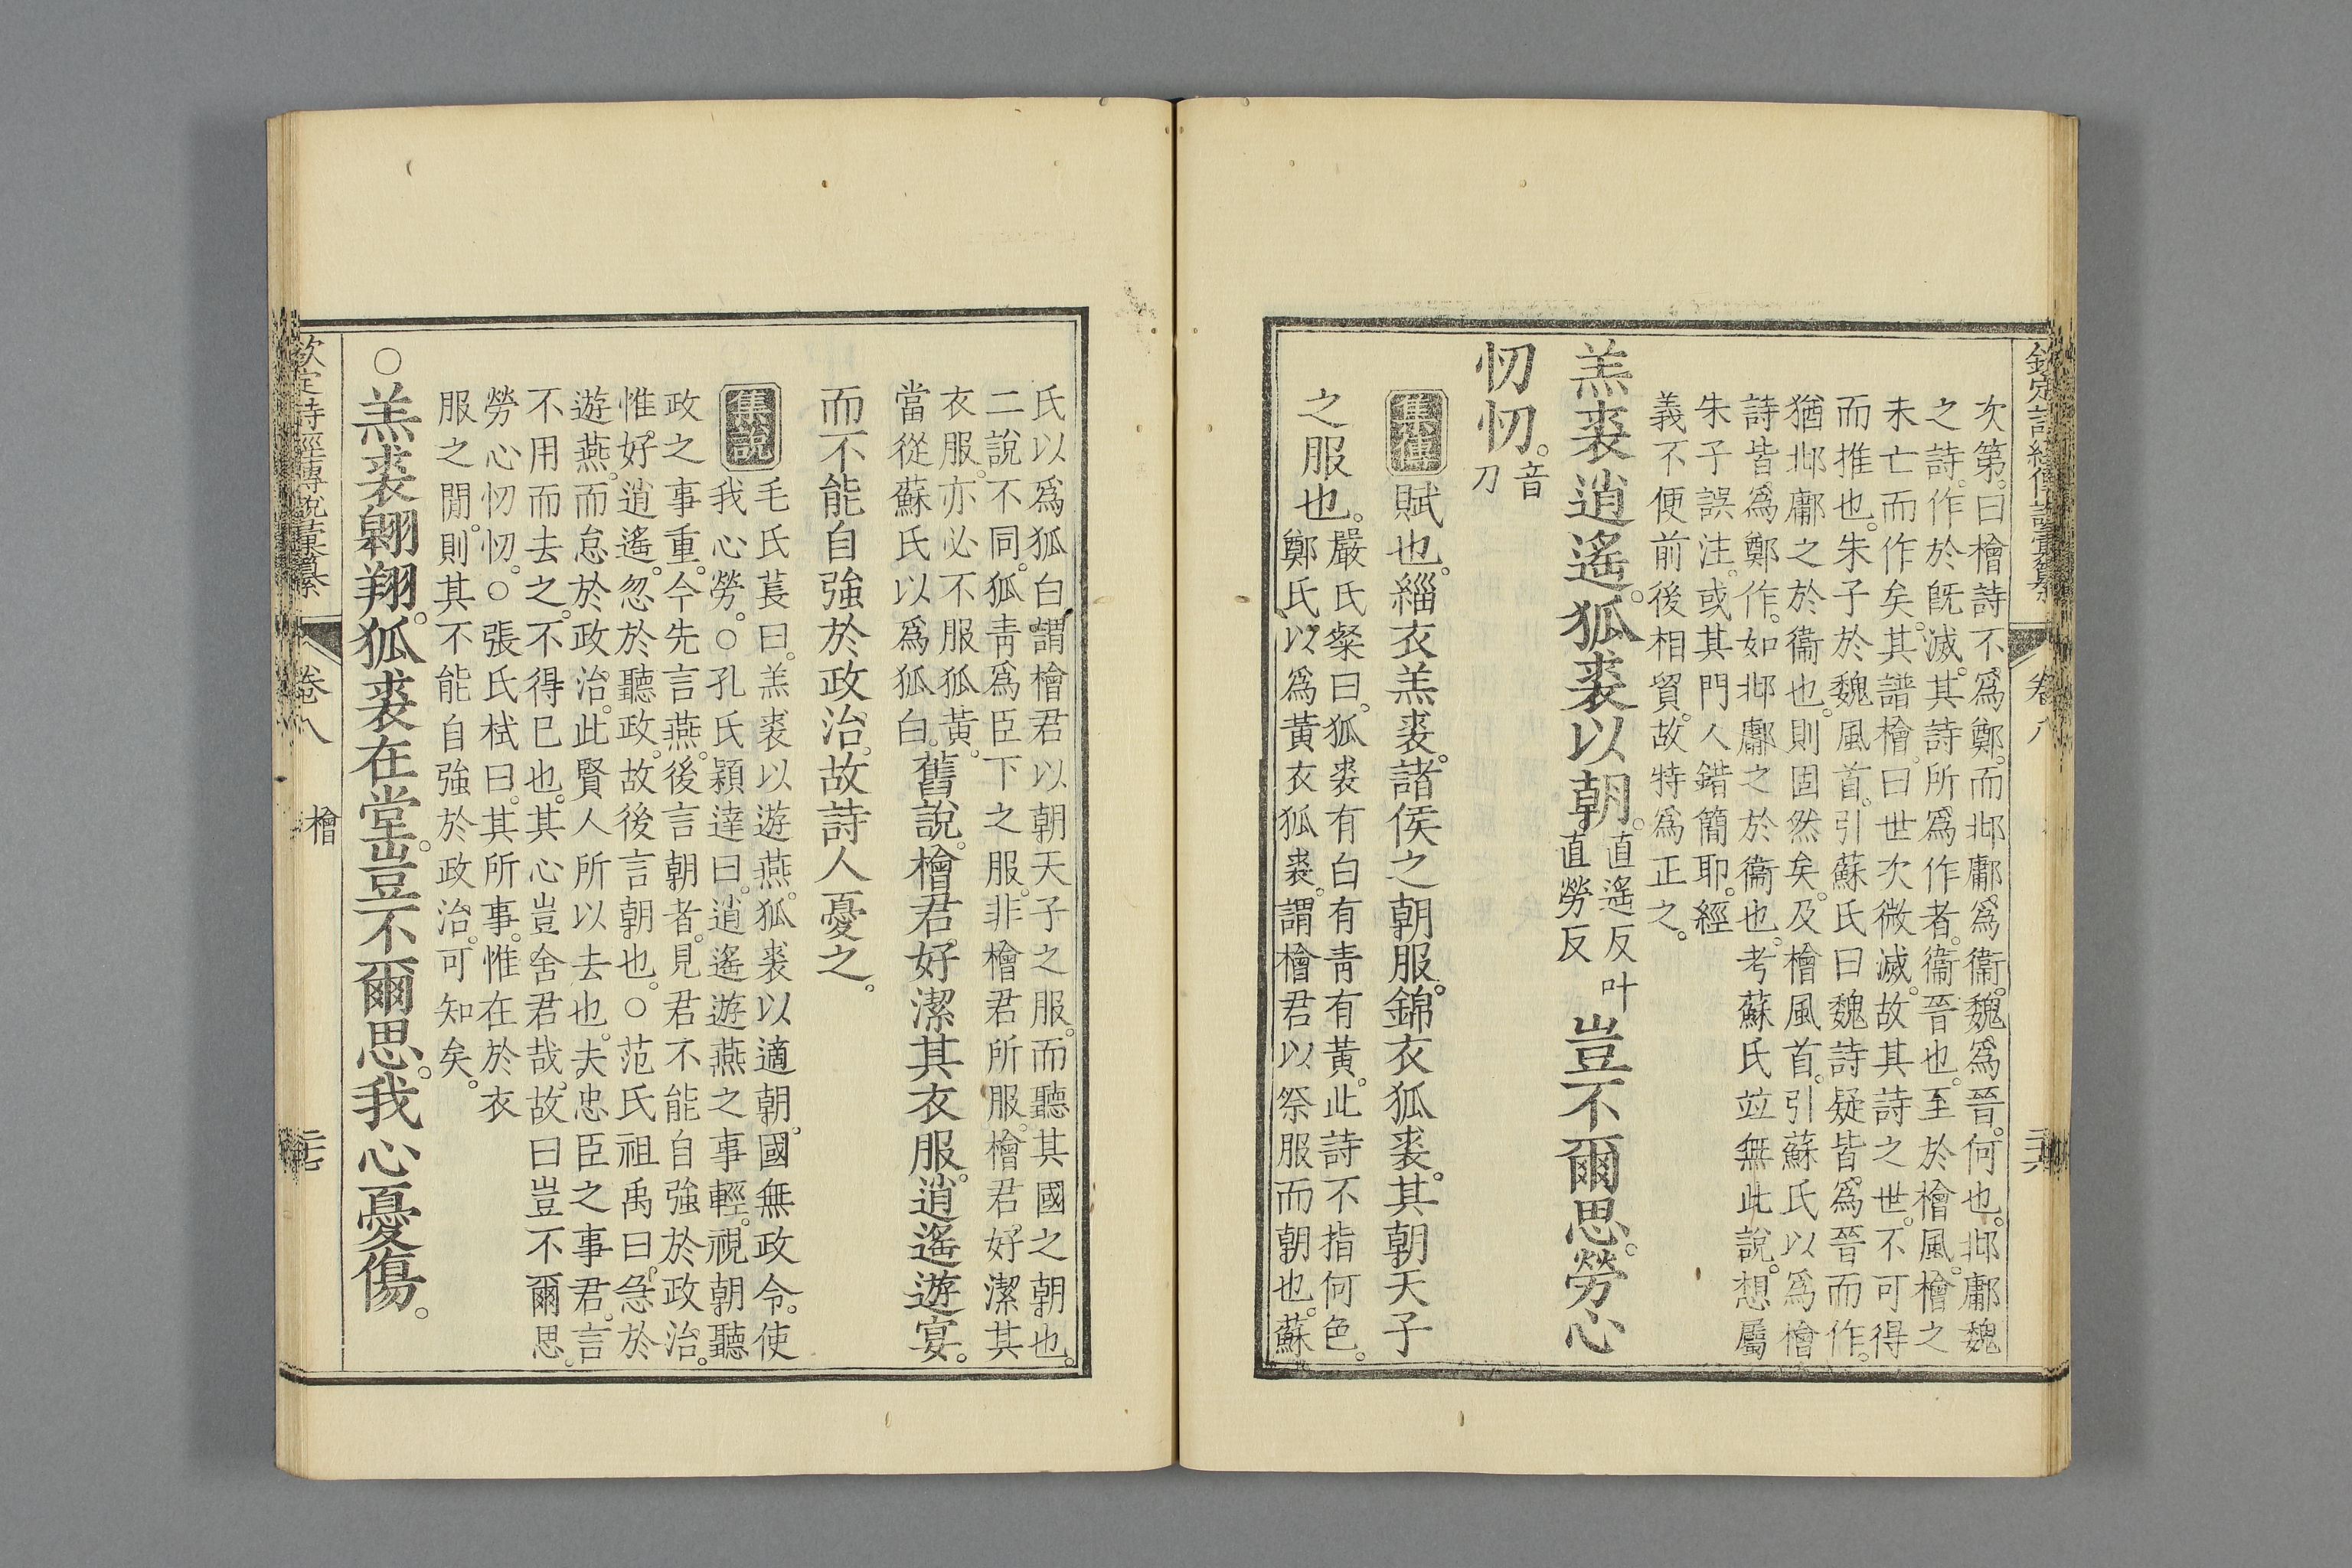 欽定詩經傳說彙纂
卷八
次第。曰檜詩不爲鄭。而邶鄘爲衞。魏爲晉。何也。邶鄘魏
之詩。作於旣滅。其詩所爲作者。衞晉也。至於檜風。檜之
未亡而作矣。其譜檜。曰世次微滅。故其詩之世。不可得
而推也。朱子於魏風首。引蘇氏曰魏詩疑皆爲晉而作。
猶邶鄘之於衞也。則固然矣。及檜風首。引蘇氏以爲檜
詩皆爲鄭作。如邶鄘之於衞也。考蘇氏竝無此說。想屬
朱子誤注。或其門人錯簡耶。經
義不便前後相貿。故特爲正之。
羔裘逍遙。狐裘以朝。直遙反叶
直勞反豈不爾思。勞心
忉忉。音
刀
集傳賦也。緇衣羔裘。諸侯之朝服。錦衣狐裘。其朝天子
之服也。嚴氏粲曰。狐裘有白有靑有黃。此詩不指何色。
鄭氏以爲黃衣狐裘。謂檜君以祭服而朝也。蘇
氏以爲狐白。謂檜君以朝天子之服。而聽其國之朝也。
二說不同。狐靑爲臣下之服。非檜君所服。檜君好潔其
衣服。亦必不服狐黃。
當從蘇氏以爲狐白。舊說。檜君好潔其衣服。逍遙遊宴。
而不能自強於政治。故詩人憂之。
集說毛氏萇曰。羔裘以遊燕。狐裘以適朝。國無政令。使
我心勞。○孔氏穎達曰。逍遙遊燕之事輕。視朝聽
政之事重。今先言燕。後言朝者。見君不能自強於政治。
惟好逍遙。忽於聽政。故後言朝也。○范氏祖禹曰。急於
遊燕。而怠於政治。此賢人所以去也。夫忠臣之事君。言
不用而去之。不得已也。其心豈舍君哉。故曰豈不爾思。
勞心忉忉。○張氏栻曰。其所事。惟在於衣
服之閒。則其不能自強於政治。可知矣。
○羔裘翺翔。狐裘在堂。豈不爾思。我心憂傷。
欽定詩經傳說彙纂
卷八
檜